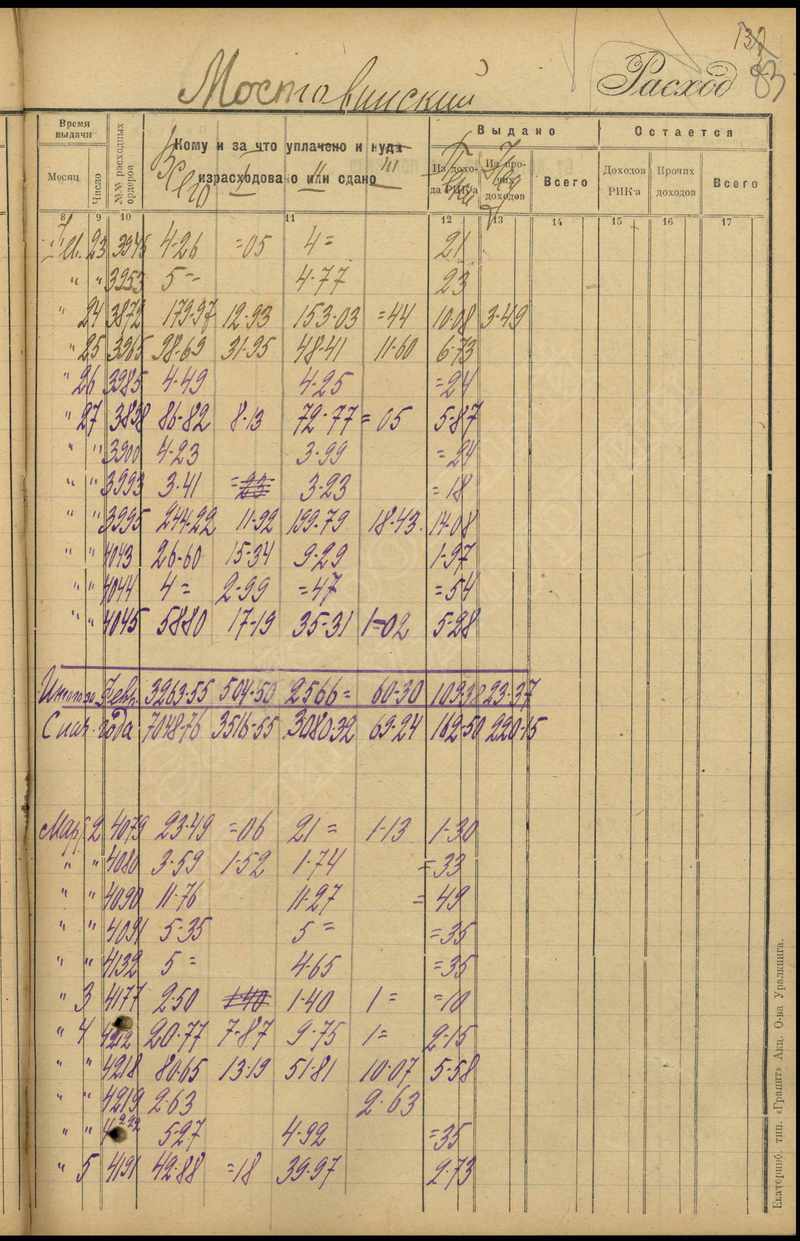 132
83
Мостовинский Расход
Время выдачи №№ расходных ордеров Кому и за что уплачено и куда израсходовано или сдано Выдано Остается
Месяц Число Всего I II III Из дохода РИК'а Из прочих доходов Всего Доходов РИК-а Прочих доходов Всего
8 9 10 11 12 13 14 15 16 17
23 3945 4-26 =05 4= 21
" " 3953 5-- 4-77 23
" 24 3872 179-97 12-93 153-03 =44 10-08 3-49
" 25 3965 98-69 31-95 48-41 11-60 6-73
" 26 3985 4-49 4-25 =24
" 27 3838 86-82 8-13 72-77 =05 5-87
" " 3900 4-23 3-99 =24
" " 3993 3-41 =23 3-23 =18
" " 3995 244-22 11-92 199-79 18-43. 14-08
" " 4043 26-60 15-34 9-29 1-97
" " 4044 4= 2-99 =47 =54
" " 4045 5880 17-19 35-31 1=02 5-28
Итого за Февр. 3263-55 504-50 2566= 60-30 109-38 23-37
С нач. года 7048-76 3516-55 3080-32 69-24 162-50 220-15
Март 2 4079 23-49 =06 21= 1-13 1-30
" " 4080 3-59 1-52 1-74 =33
" " 4090 11-76 11-27 =49
" " 4091 5-35 5= =35
" " 4132 5= 4-65 =35
" 3 4177 2-50 1-40 1-40 1= =10
" 4 4212 20-77 7-87 9-75 1= 2-15
" " 4218 80-65 13-19 51-81 10-07 5-58
" " 4219 2-63 2-63
" " 4222 5-27 4-92 =35
" 5 4191 42-88 =18 39-97 2-73
Екатеринб. тип. «Гранит» Акц. О-ва Уралкнига.